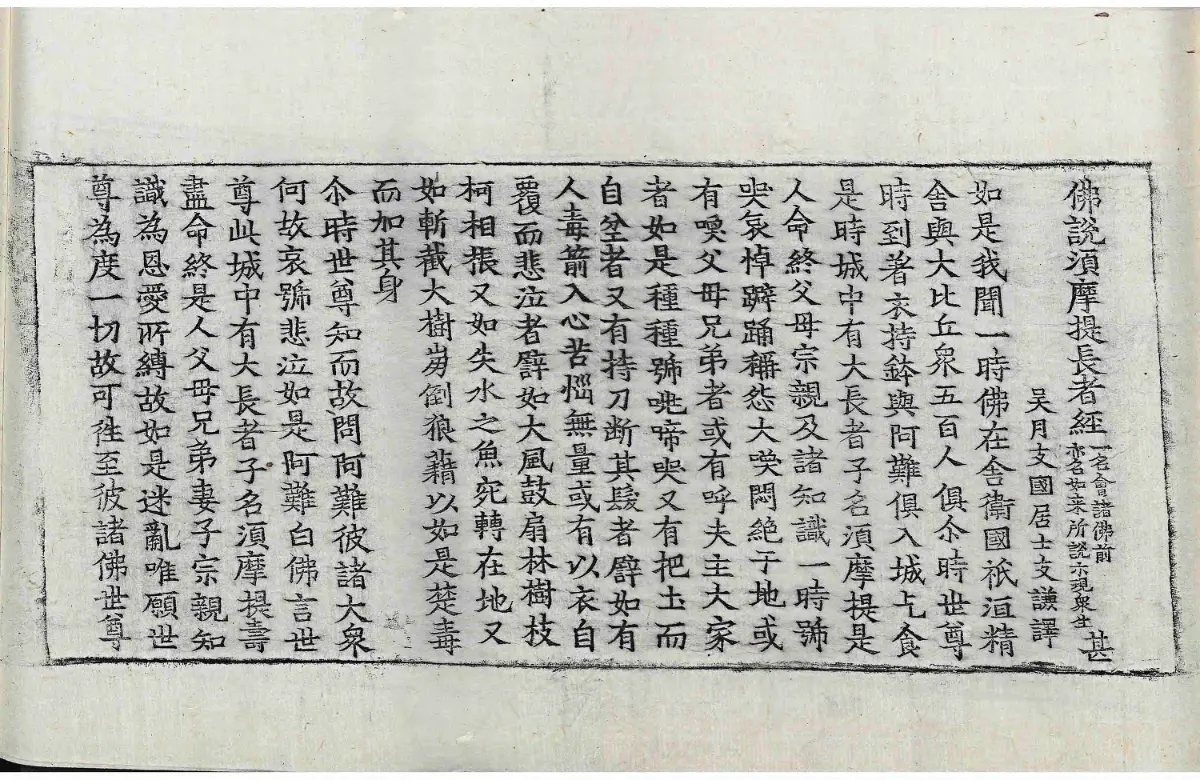 佛說須摩提長者經一名會諸佛前
亦名如來所說示現衆生 甚
吳月支國居士支謙譯
如是我聞一時佛在舍衛國祇洹精
舍與大比丘衆五百人俱尒時世尊
時到著衣持鉢與阿難俱入城乞食
是時城中有大長者子名須摩提是
人命終父母宗親及諸知識一時號
哭哀悼躃踊稱怨大哭悶絕于地或
有喚父母兄弟者或有呼夫主大家
者如是種種號咷啼哭又有把土而
自坌者又有持刀断其髮者譬如有
人毒箭入心苦惱無量或有以衣自
覆而悲泣者譬如大風鼓扇林樹枝
柯相振又如失水之魚宛轉在地又
如斬截大樹崩倒狼藉以如是楚毒
而加其身
尒時世尊知而故問阿難彼諸大衆
何故哀號悲泣如是阿難白佛言世
尊此城中有大長者子名須摩提壽
盡命終是人父母兄弟妻子宗親知
識為恩愛所縛故如是迷亂唯願世
尊為度一切故可往至彼諸佛世尊